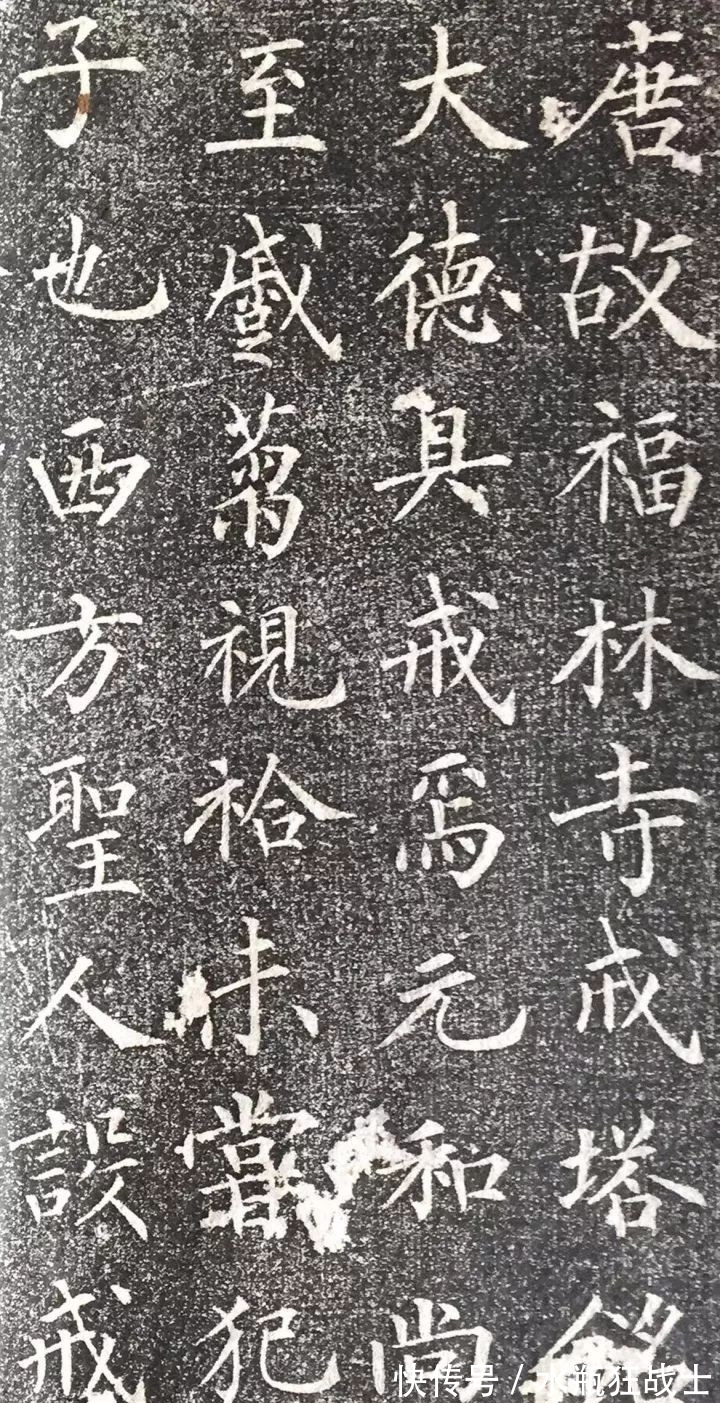 唐故福林寺戒塔銘
大德具戒焉元和尚
至盛萬視袷未嘗犯
子也西方聖人設戒
快传号／水瓶狂战士